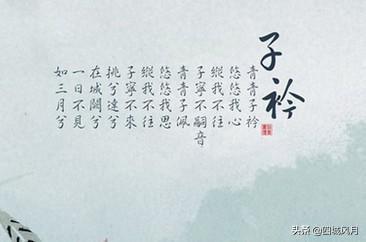 子衿
青青子衿
悠悠我心
縱我不往
子寧不嗣音
青青子佩
悠悠我思
縱我不往
子寧不來
挑兮達兮
在城闕兮
一日不見
如三月兮
头条 @四城风月